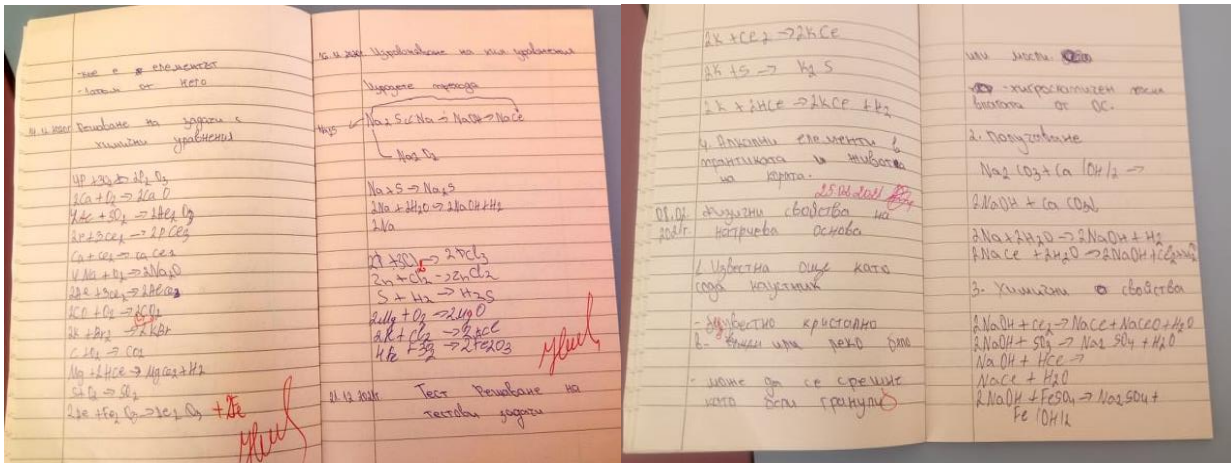 елементът
от него
Решаване на задачи с
химични уравнения
4P + 3O2 → 2P2O3
2Ca + O2 → 2CaO
2P + 3Ce2 → 2PCe3
Ca + Ce2 → CaCe2
4Na + O2 → 2Na2O
2Ae + 3Ce2 → 2AeCe3
2CO + O2 → 2CO2
2K + Br2 → 2KBr
C + O2 → CO2
Mg + 2HCe → MgCe2 + H2
S + O2 → SO2
2Ae + Fe2O3 → Ae2O3 + 2Fe
Изравняване на хим уравнения
Изразете прехода
Na2S ← Na → NaOH → NaCe
Na2O2
Na + S → Na2S
2Na + 2H2O → 2NaOH + H2
2Na
2P + 3Cl2 → 2PCl3
Zn + Cl2 → ZnCl2
S + H2 → H2S
2Mg + O2 → 2MgO
2K + Cl2 → 2KCl
4Fe + 3O2 → 2Fe2O3
Тест Решаване на
тестови задачи
2K + Ce2 → 2KCe
2K + S → K2S
2K + 2HCe → 2KCe + H2
4. Алкални елементи в
практиката и живота
на хората.
Физични свойства на
натриева основа
1. Известна още като
сода каустик
кристално
бяло
- може да се срещне
като бели гранули
или
- хигроскопичен
влагата от ОС.
2. Получаване
Na2CO3 + Ca(OH)2 →
2NaOH + CaCO3↓
2Na + 2H2O → 2NaOH + H2
2NaCe + 2H2O → 2NaOH + Ce2 + H2
3. Химични свойства
2NaOH + Ce2 → NaCe + NaCeO + H2O
2NaOH + SO3 → Na2SO4 + H2O
NaOH + HCe →
NaCe + H2O
2NaOH + FeSO4 → Na2SO4 +
Fe(OH)2